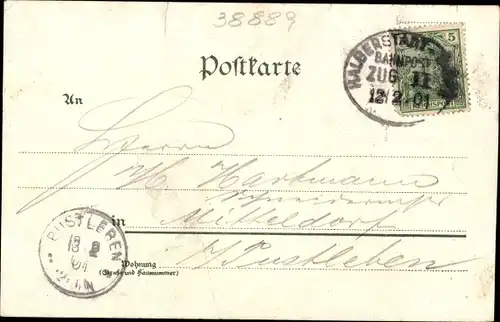 38889
Postkarte
HALBERSTADT
BAHNPOST
ZUG 11
12/2 01
5
An
Herrn
H. Hartmann
Schneidermeister
in Mitteldorf
b/ Pustleben
Wohnung
(Straße und Hausnummer)
PUSTLEBEN
13 2
01